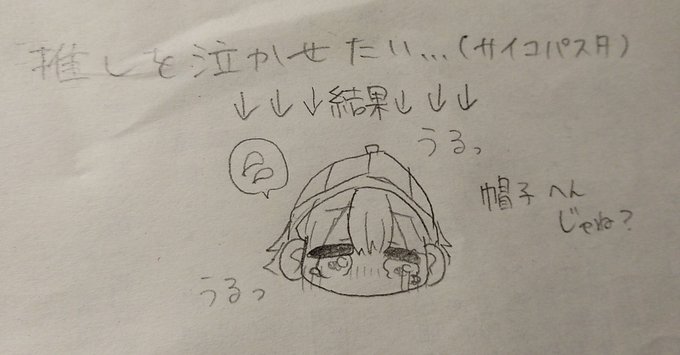 推しを泣かせたい…(サイコパス月)
↓↓↓結果↓↓↓
うるっ
帽子 へん
じゃね?
うるっ